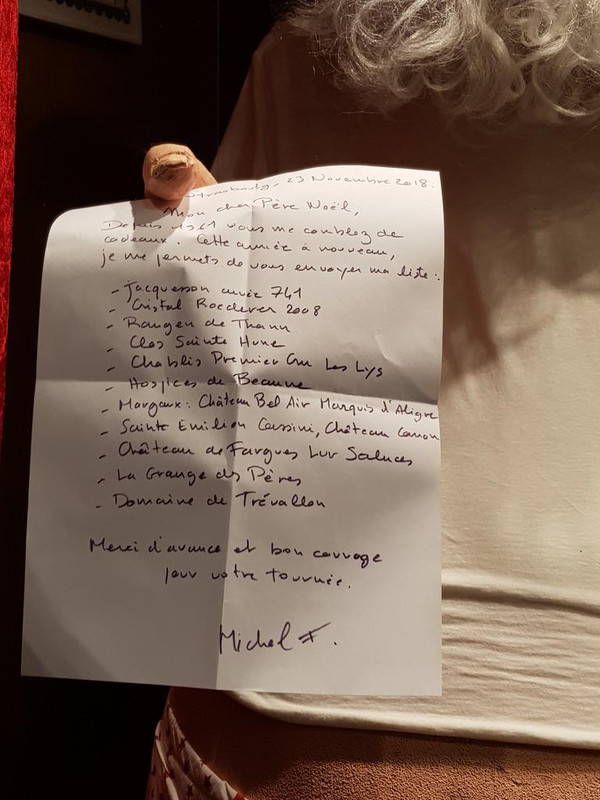 Strasbourg, 23 Novembre 2018.
Mon cher Père Noël,
Depuis 1961 vous me comblez de
cadeaux. Cette année à nouveau,
je me permets de vous envoyer ma liste :
- Jacquesson cuvée 741
- Cristal Roederer 2008
- Rangen de Thann
- Clos Sainte Hune
- Chablis Premier Cru Les Lys
- Hospices de Beaune
- Margaux : Château Bel Air Marquis d'Aligre
- Sainte Emilion Cassini, Château Canon
- Château de Fargues Lur Saluces
- La Grange des Pères
- Domaine de Trévallon
Merci d'avance et bon courage
pour votre tournée.
Michel F.